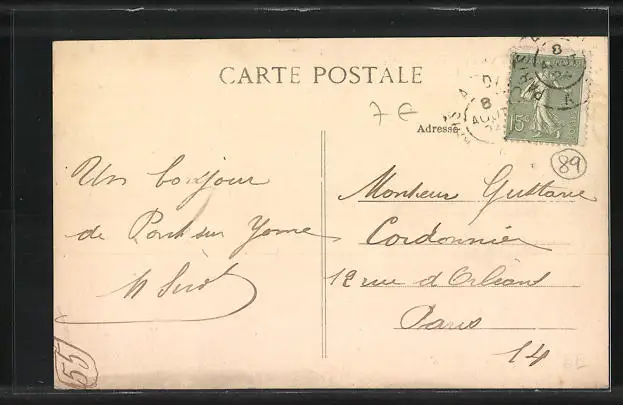 CARTE POSTALE
7 €
Adresse
15c
89
Un bonjour
de Pont sur Yonne
Monsieur Gustave
Cordonnier
12 rue d'Orléans
Paris
14
55
PARIS
8
AOUT